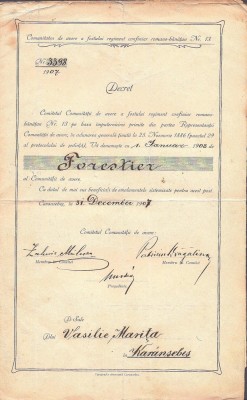 Comunitatea de avere a fostului regiment confiniar romano-bănățic No. 13.
No 3598
1907
Decret
Comitetul Comunității de avere a fostului regiment confiniar romano-
bănățic No. 13 pe baza împuternicirei primite din partea Representanței
Comunității de avere, în ședința generală ținută la 23. Novembre 1886 (punctul 29
al protocolului de ședință), Vă denumește cu 1. Januar 1908 de
Forestier
al Comunității de avere.
Cu datul de mai sus beneficiați de emolumentele sistemisate pentru acest post.
Caransebeș, în 31 December 1907
Comitetul Comunității de avere:
Membru al Comitet
Membru al Comitet
Președintele
P. S. Sale
Dlui Vasilie Marița
în Karánsebes